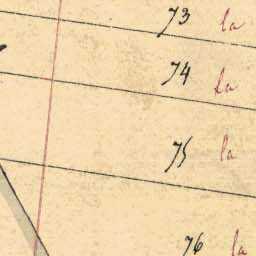 73 la
74 la
75 la
76 la